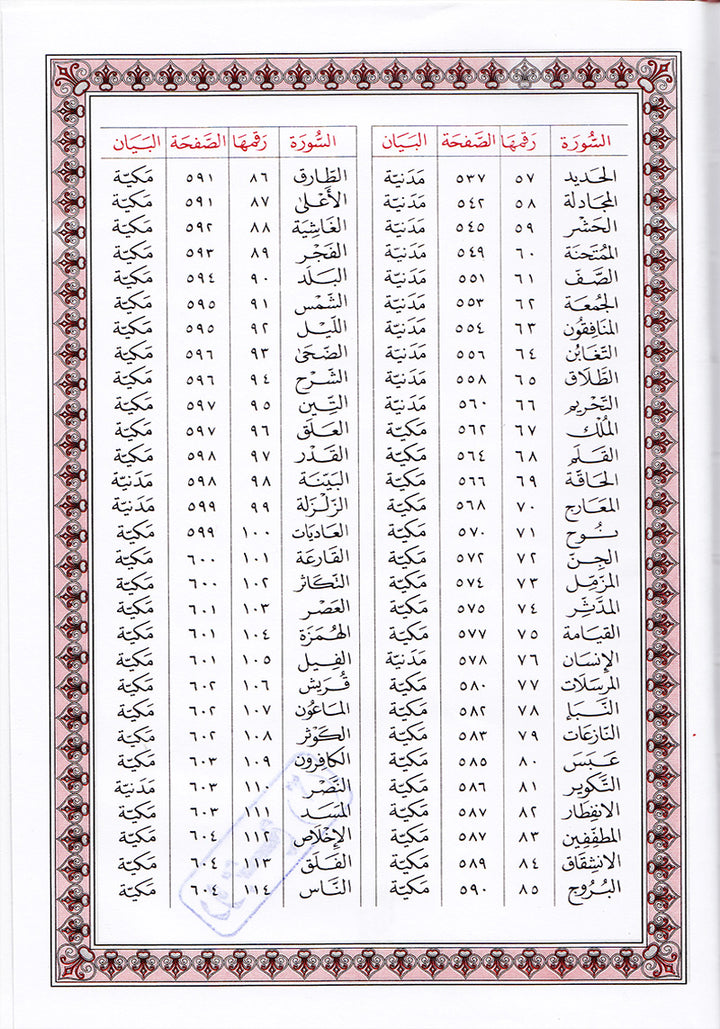 السُّورَة رَقمهَا الصَّفحَة البَيَان
الحَديد ٥٧ ٥٣٧ مَدَنيّة
المجَادلة ٥٨ ٥٤٢ مَدَنيّة
الحَشْر ٥٩ ٥٤٥ مَدَنيّة
المُمتَحنَة ٦٠ ٥٤٩ مَدَنيّة
الصَّف ٦١ ٥٥١ مَدَنيّة
الجُمُعَة ٦٢ ٥٥٣ مَدَنيّة
المنَافِقُون ٦٣ ٥٥٤ مَدَنيّة
التّغَابُن ٦٤ ٥٥٦ مَدَنيّة
الطَّلَاق ٦٥ ٥٥٨ مَدَنيّة
التّحْريم ٦٦ ٥٦٠ مَدَنيّة
المُلْك ٦٧ ٥٦٢ مَكيّة
القَلَم ٦٨ ٥٦٤ مَكيّة
الحَاقّة ٦٩ ٥٦٦ مَكيّة
المعَارج ٧٠ ٥٦٨ مَكيّة
نُوح ٧١ ٥٧٠ مَكيّة
الجِنّ ٧٢ ٥٧٢ مَكيّة
المزّمّل ٧٣ ٥٧٤ مَكيّة
المدَّثِّر ٧٤ ٥٧٥ مَكيّة
القِيَامة ٧٥ ٥٧٧ مَكيّة
الإنسَان ٧٦ ٥٧٨ مَدَنيّة
المرسَلَات ٧٧ ٥٨٠ مَكيّة
النَّبَإ ٧٨ ٥٨٢ مَكيّة
النّازعَات ٧٩ ٥٨٣ مَكيّة
عَبَسَ ٨٠ ٥٨٥ مَكيّة
التّكوير ٨١ ٥٨٦ مَكيّة
الانفِطار ٨٢ ٥٨٧ مَكيّة
المطفّفِين ٨٣ ٥٨٧ مَكيّة
الانشِقَاق ٨٤ ٥٨٩ مَكيّة
البُرُوج ٨٥ ٥٩٠ مَكيّة
السُّورَة رَقمهَا الصَّفحَة البَيَان
الطّارق ٨٦ ٥٩١ مَكيّة
الأَعْلى ٨٧ ٥٩١ مَكيّة
الغَاشِيَة ٨٨ ٥٩٢ مَكيّة
الفَجْر ٨٩ ٥٩٣ مَكيّة
البَلَد ٩٠ ٥٩٤ مَكيّة
الشّمْس ٩١ ٥٩٥ مَكيّة
اللّيْل ٩٢ ٥٩٥ مَكيّة
الضّحَىٰ ٩٣ ٥٩٦ مَكيّة
الشَّرْح ٩٤ ٥٩٦ مَكيّة
التِّين ٩٥ ٥٩٧ مَكيّة
العَلَق ٩٦ ٥٩٧ مَكيّة
القَدْر ٩٧ ٥٩٨ مَكيّة
البَيّنَة ٩٨ ٥٩٨ مَدَنيّة
الزّلزَلة ٩٩ ٥٩٩ مَدَنيّة
العَاديَات ١٠٠ ٥٩٩ مَكيّة
القَارعَة ١٠١ ٦٠٠ مَكيّة
التّكَاثر ١٠٢ ٦٠٠ مَكيّة
العَصْر ١٠٣ ٦٠١ مَكيّة
الهُمَزَة ١٠٤ ٦٠١ مَكيّة
الفِيل ١٠٥ ٦٠١ مَكيّة
قُرَيش ١٠٦ ٦٠٢ مَكيّة
المَاعُون ١٠٧ ٦٠٢ مَكيّة
الكَوْثر ١٠٨ ٦٠٢ مَكيّة
الكافِرون ١٠٩ ٦٠٣ مَكيّة
النَّصْر ١١٠ ٦٠٣ مَدَنيّة
المَسَد ١١١ ٦٠٣ مَكيّة
الإخْلَاص ١١٢ ٦٠٤ مَكيّة
الفَلَق ١١٣ ٦٠٤ مَكيّة
النَّاس ١١٤ ٦٠٤ مَكيّة